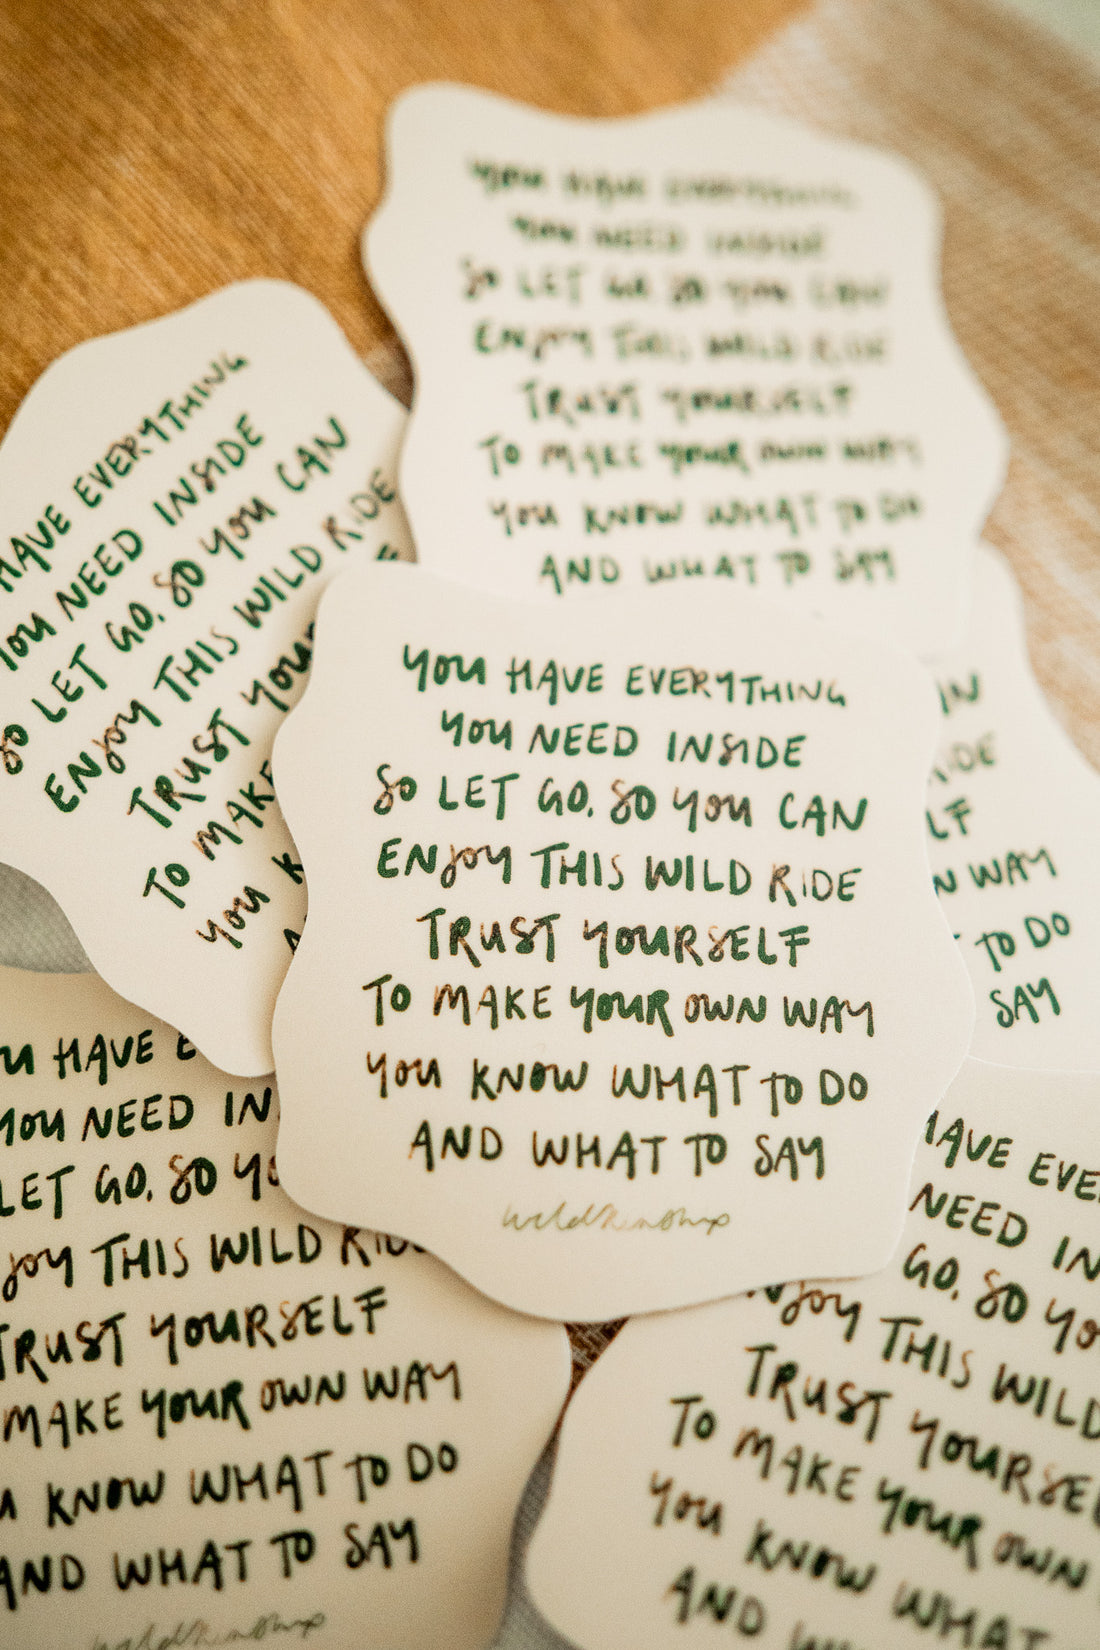 YOU HAVE EVERYTHING
YOU NEED INSIDE
SO LET GO. SO YOU CAN
ENJOY THIS WILD RIDE
TRUST YOURSELF
TO MAKE YOUR OWN WAY
YOU KNOW WHAT TO DO
AND WHAT TO SAY
HAVE EVERYTHING
YOU NEED INSIDE
SO LET GO. SO YOU CAN
ENJOY THIS WILD RIDE
TRUST YOUR
TO MAKE
YOU K
YOU HAVE EVERYTHING
YOU NEED INSIDE
SO LET GO. SO YOU CAN
ENJOY THIS WILD RIDE
TRUST YOURSELF
TO MAKE YOUR OWN WAY
YOU KNOW WHAT TO DO
AND WHAT TO SAY
IN
RIDE
LF
N WAY
TO DO
SAY
U HAVE E
YOU NEED IN
LET GO. SO YO
JOY THIS WILD RID
TRUST YOURSELF
MAKE YOUR OWN WAY
U KNOW WHAT TO DO
AND WHAT TO SAY
HAVE EVE
NEED IN
GO. SO YO
NJOY THIS WILD
TRUST YOURSE
TO MAKE YOUR OWN
YOU KNOW WHAT
AND